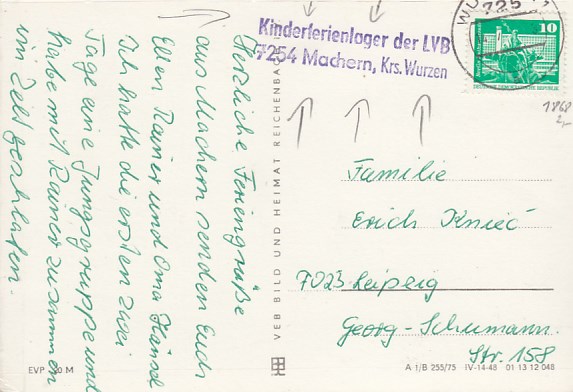 Herzliche Feriengrüße
aus Machern senden Euch
Ellen Rainer und Oma Hänsel
Ich hatte die ersten zwei
Tage eine Jungsgruppe und
habe mit Rainer zusammen
im Zelt geschlafen.
EVP 0,20 M
VEB BILD UND HEIMAT REICHENBACH
Kinderferienlager der LVB
7254 Machern, Krs. Wurzen
WU
725
10
DEUTSCHE DEMOKRATISCHE REPUBLIK
1868
2,-
Familie
Erich Knieć
7023 Leipzig
Georg-Schumann.
Str. 158
A 1/B 255/75 IV-14-48 01 13 12 048